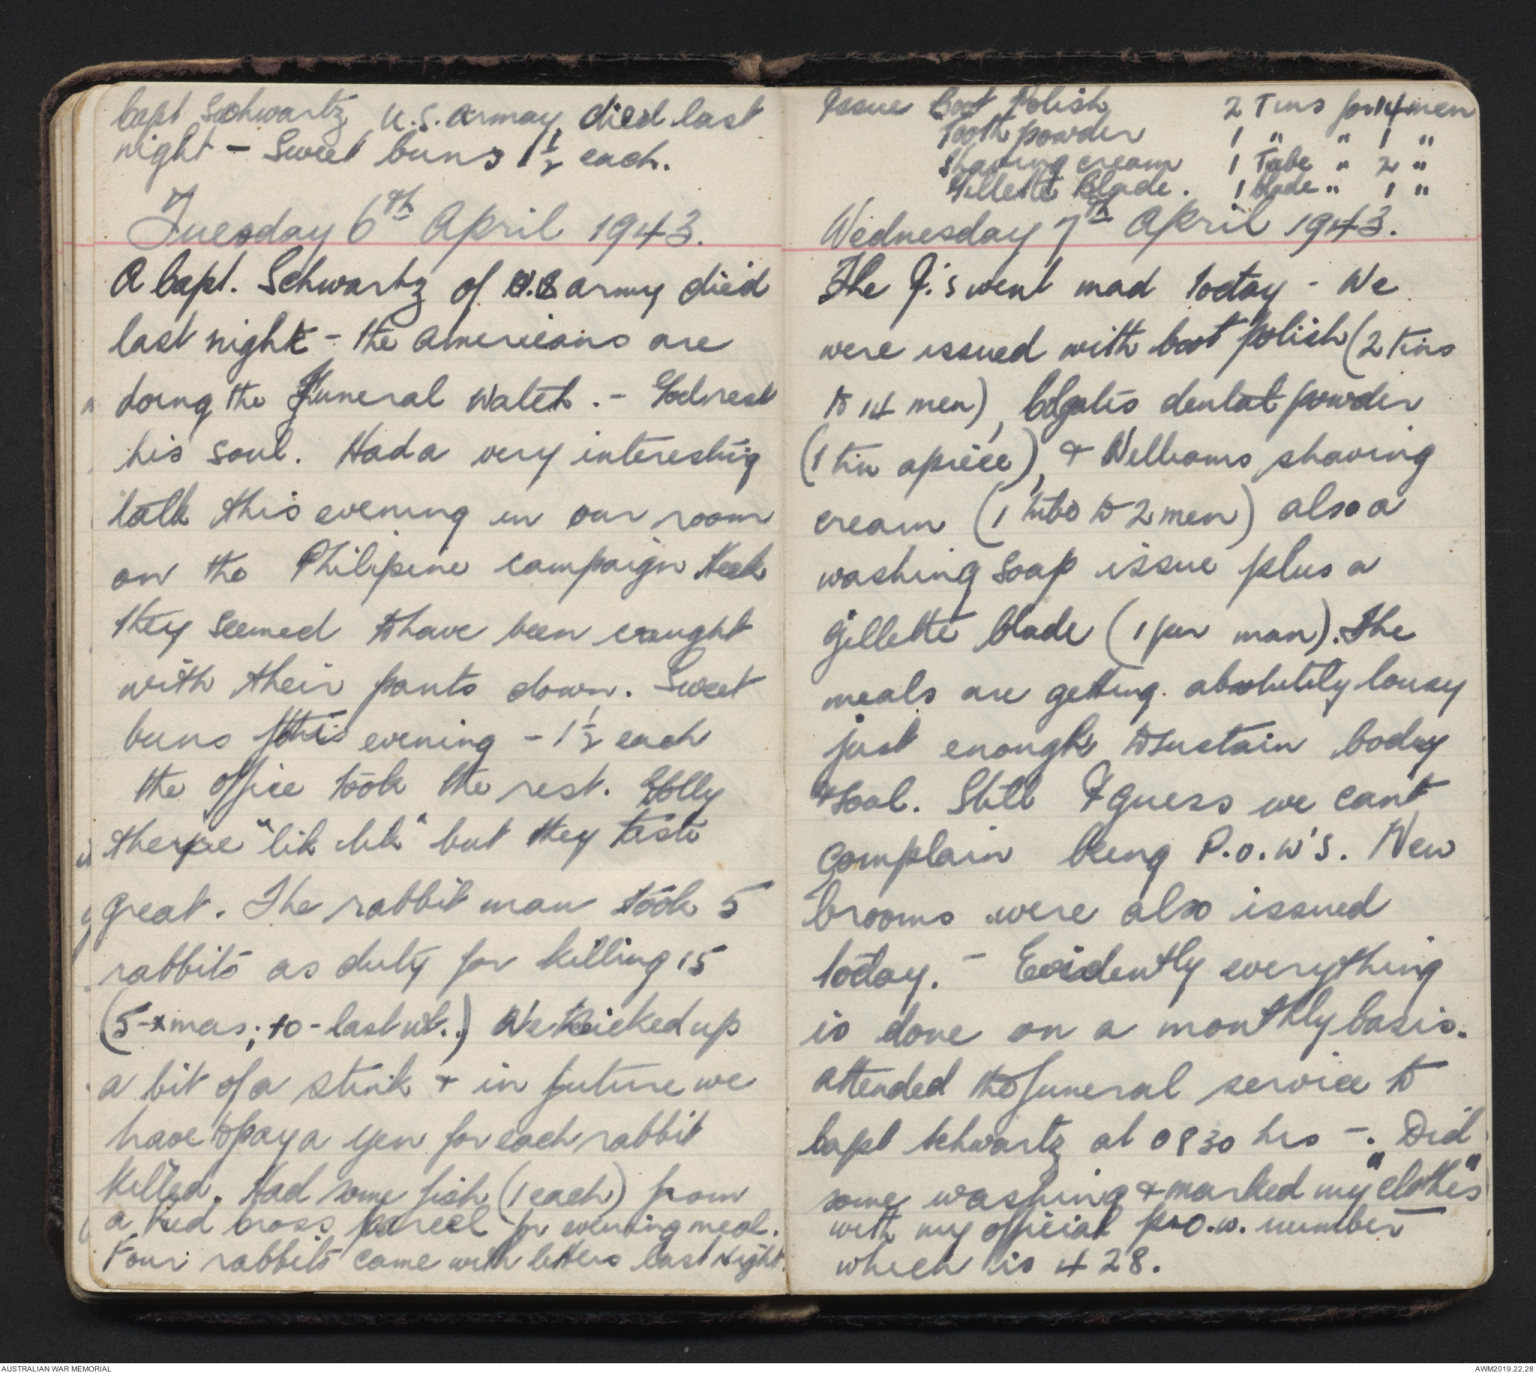 Capt Schwartz U.S. Armay died last
night - Sweet buns 1 1/2 each.
Tuesday 6th April 1943.
A Capt. Schwartz of U.S army died
last night - the Americans are
doing the Funeral Watch. - God rest
his soul. Had a very interesting
talk this evening in our room
on the Philipine campaign Heck
they seemed to have been caught
with their pants down. Sweet
buns this evening - 1 1/2 each
the office took the rest. Golly
they're "lik lik" but they taste
great. The rabbit man took 5
rabbits as duty for killing 15
(5-xmas; 10-last wk.) We kicked up
a bit of a stink + in future we
have to pay a yen for each rabbit
killed. Had some fish (1 each) from
a Red Cross parcel for evening meal.
Four rabbits came with litters last night.
Issue Boot Polish 2 Tins for 14 men
Tooth powder 1 " " 1 "
Shaving cream 1 Tube " 2 "
Gillette Blade. 1 blade " 1 "
Wednesday 7th April 1943.
The J.'s went mad today - We
were issued with boot polish (2 tins
to 14 men), Colgates dental powder
(1 tin apiece), + Williams shaving
cream (1 tube to 2 men) also a
washing soap issue plus a
gillette blade (1 per man). The
meals are getting absolutely lousy
just enough to sustain body
+ soal. Still I guess we cant
complain being P.O.W'S. New
brooms were also issued
today. - Evidently everything
is done on a monthly basis.
Attended the funeral service to
Capt Schwartz at 0830 hrs -. Did
some washing + marked my "clothes"
with my official p.o.w. number
which is 428.
AUSTRALIAN WAR MEMORIAL
AWM2019.22.28